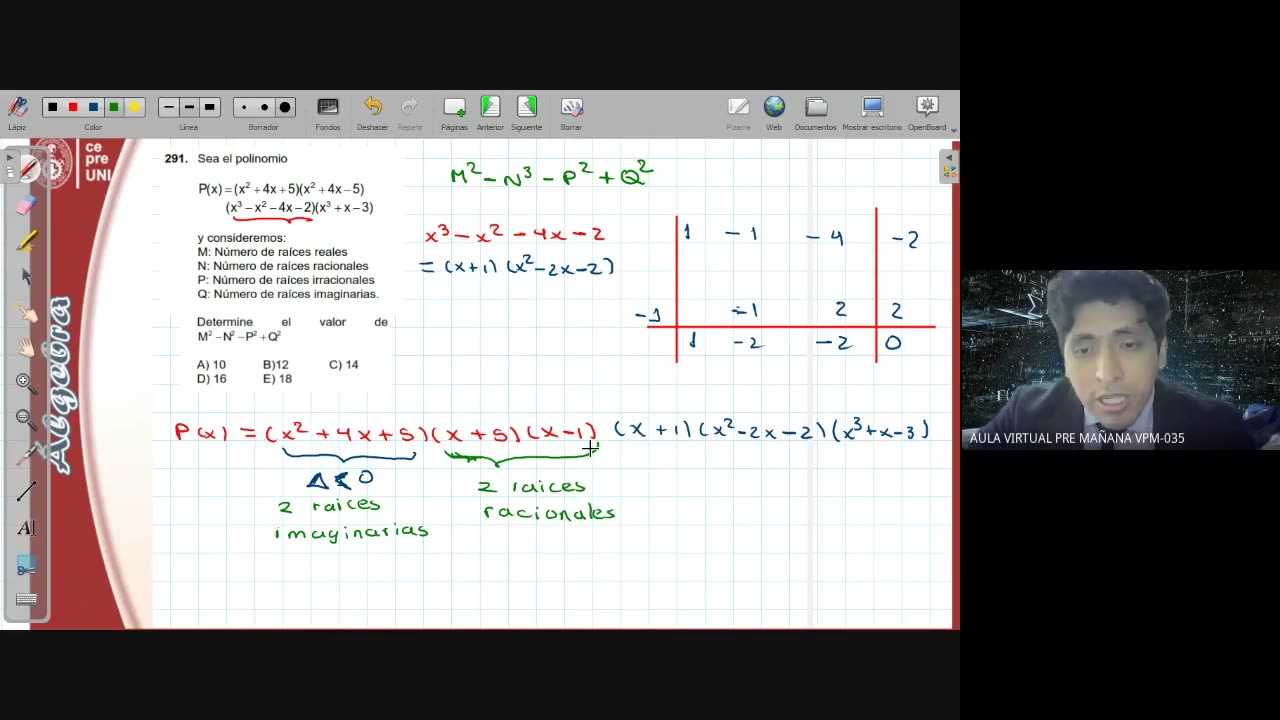 Color
Línea
Borrador
Lápiz
Fondos
Deshacer
Repetir
Páginas
Anterior
Siguiente
Borrar
Pizarra
Web
Documentos
Mostrar escritorio
OpenBoard
ce
pre
UNI
Algebra
291. Sea el polinomio
P(x)=(x²+4x+5)(x²+4x−5)
(x³−x²−4x−2)(x³+x−3)
y consideremos:
M: Número de raíces reales
N: Número de raíces racionales
P: Número de raíces irracionales
Q: Número de raíces imaginarias.
Determine el valor de
M²−N²−P²+Q²
A) 10 B)12 C) 14
D) 16 E) 18
M²−N³−P²+Q²
x³−x²−4x−2
=(x+1)(x²−2x−2)
1 −1 −4 −2
−1 −1 2 2
1 −2 −2 0
P(x)=(x²+4x+5)(x+5)(x−1)(x+1)(x²−2x−2)(x³+x−3)
Δ<0
2 raices
imaginarias
2 raices
racionales
AULA VIRTUAL PRE MAÑANA VPM-035